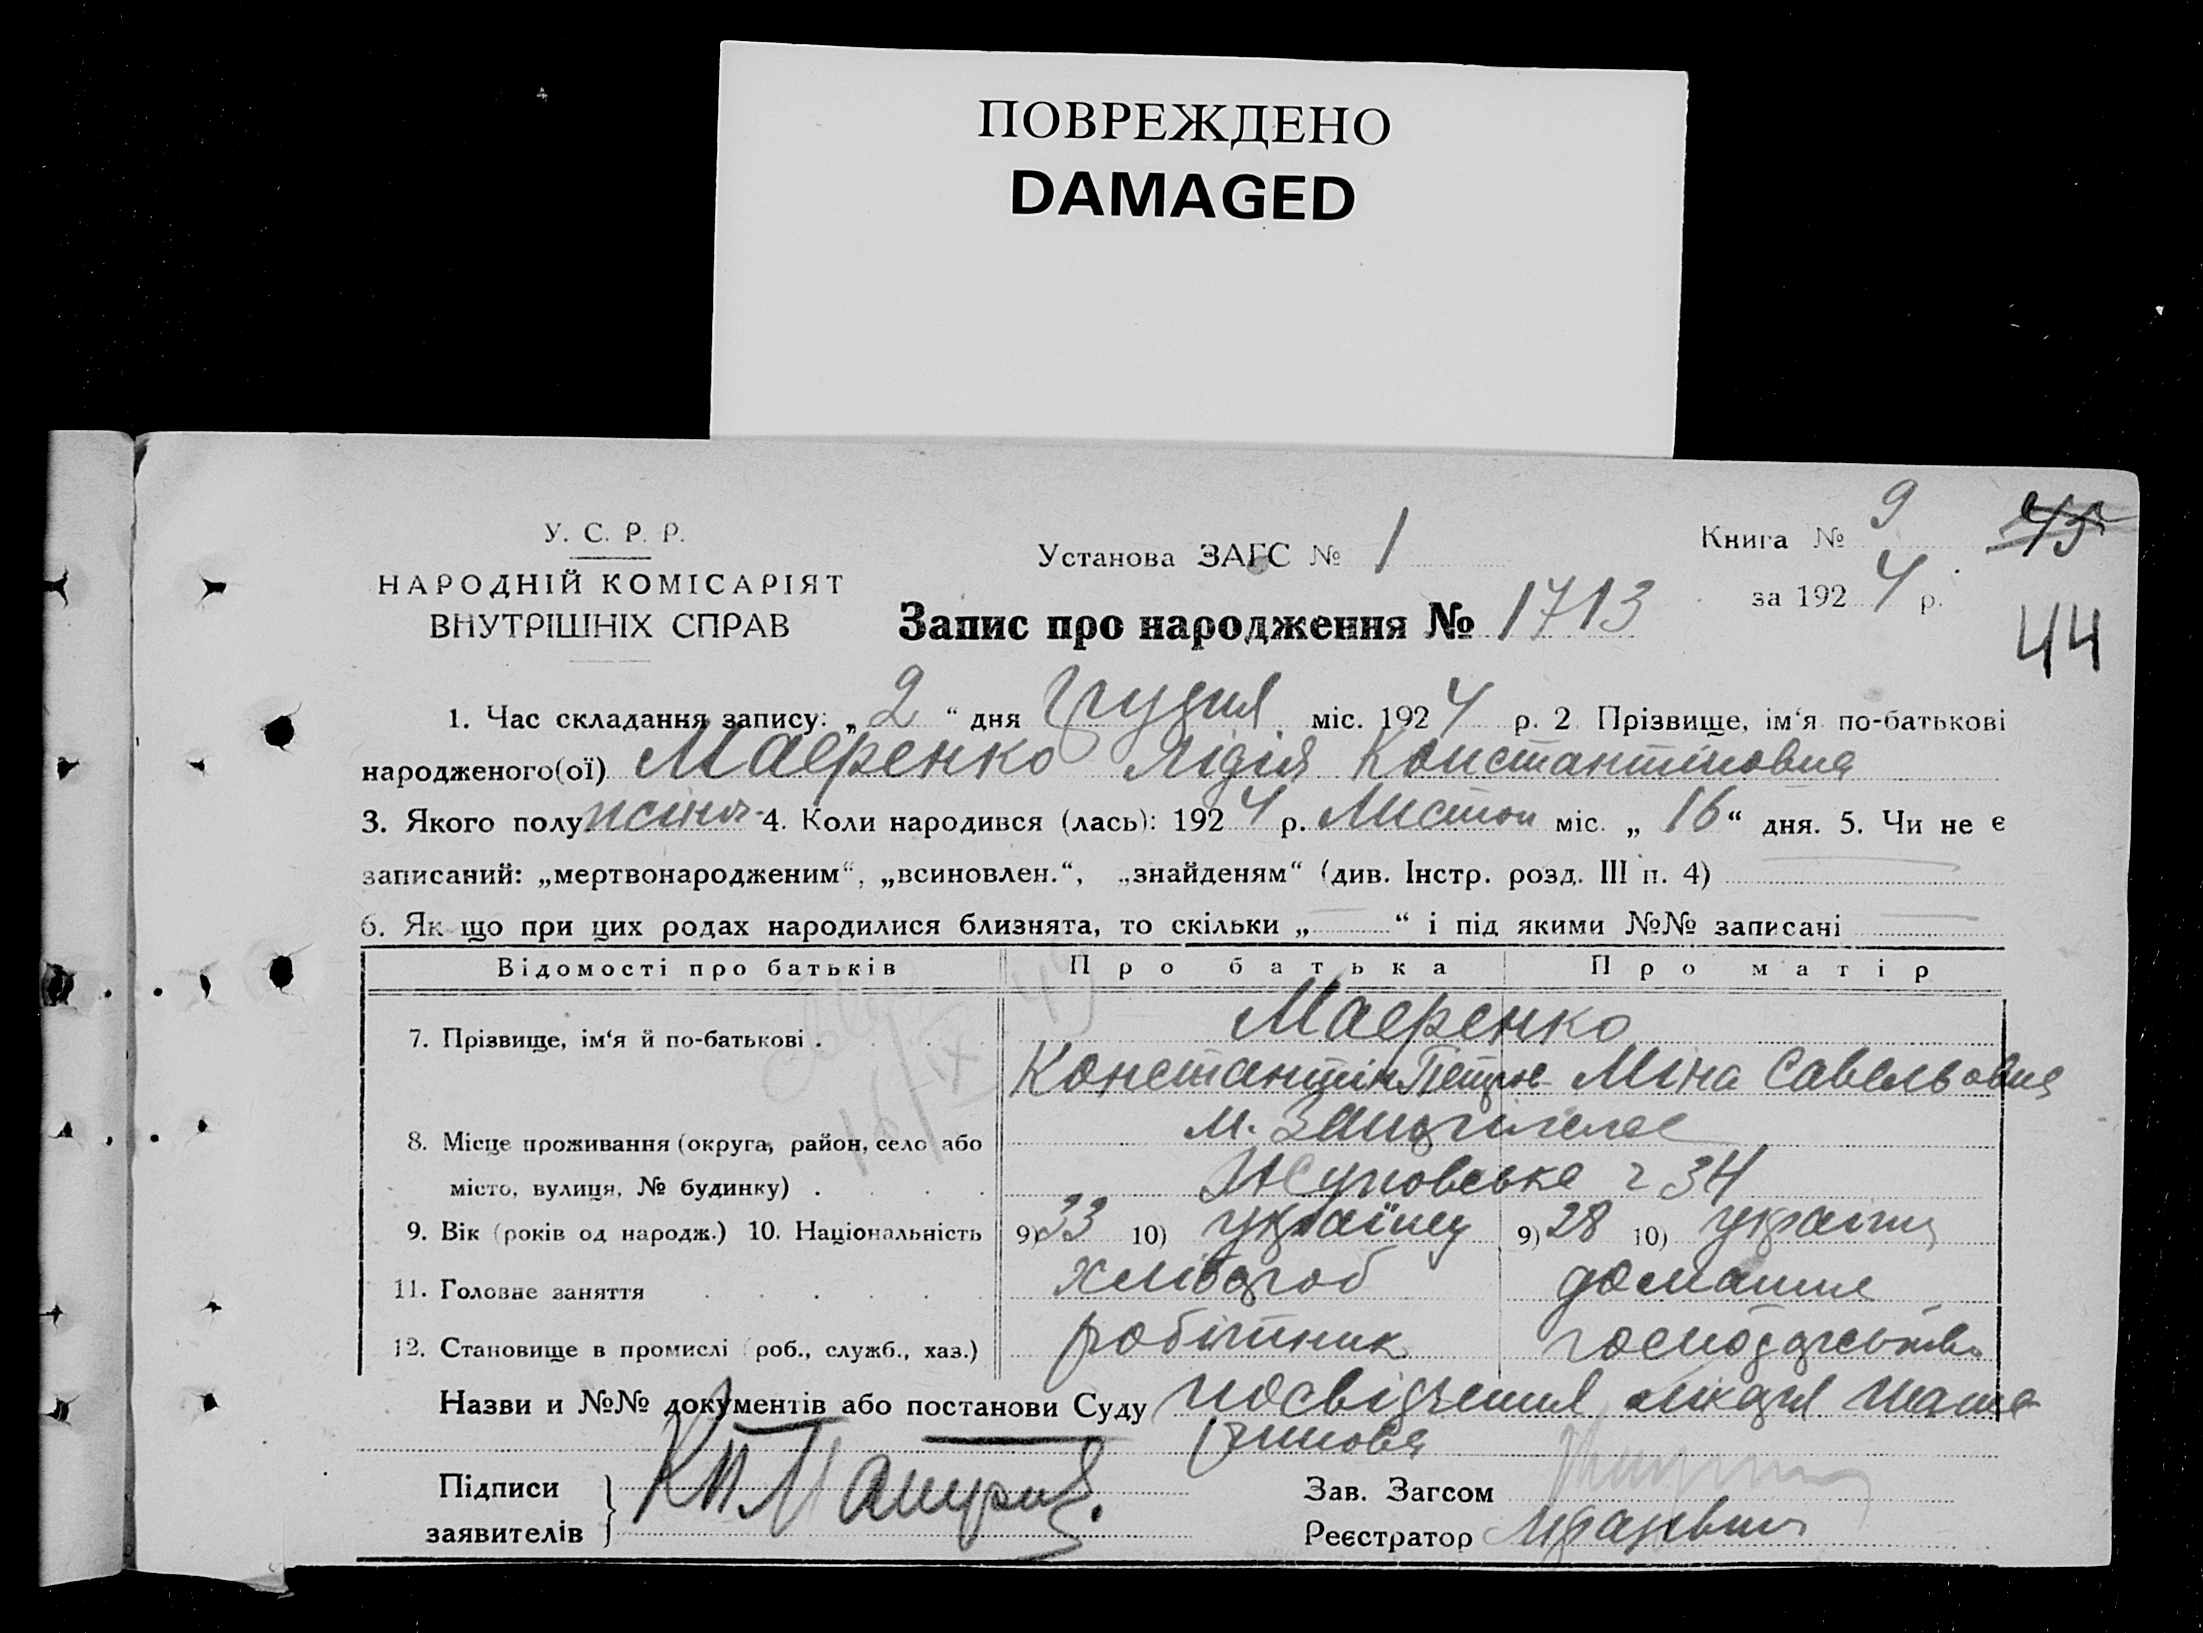 ПОВРЕЖДЕНО
DAMAGED
У. С. Р. Р.
НАРОДНІЙ КОМІСАРІЯТ
ВНУТРІШНІХ СПРАВ
Установа ЗАГС № 1
Книга № 9
45
за 1924 р.
44
Запис про народження № 1713
1. Час складання запису: „2“ дня Грудня міс. 1924 р. 2 Прізвище, ім‘я по-батькові
народженого(ої) Маєренко Лідія Константіновна
3. Якого полу жіноч. 4. Коли народився (лась): 1924 р. Листоп міс. „16“ дня. 5. Чи не є
записаний: „мертвонародженим“, „всиновлен.“, „знайденям“ (див. Інстр. розд. III п. 4)
6. Як що при цих родах народилися близнята, то скільки „ “ і під якими №№ записані
Відомості про батьків Про батька Про матір
7. Прізвище, ім‘я й по-батькові . Маєренко
Константін Петров Міна Савельовна
8. Місце проживання (округа, район, село або м.
місто, вулиця, № будинку) . 34
9. Вік (років од народж.) 10. Національність 9) 33 10) українц 9) 28 10) українц
11. Головне заняття хлібороб домашнє
12. Становище в промислі (роб., служб., хаз.) робітник господарство
Назви и №№ документів або постанови Суду посвідчення лікаря
Підписи
заявителів } К П
Зав. Загсом
Реєстратор